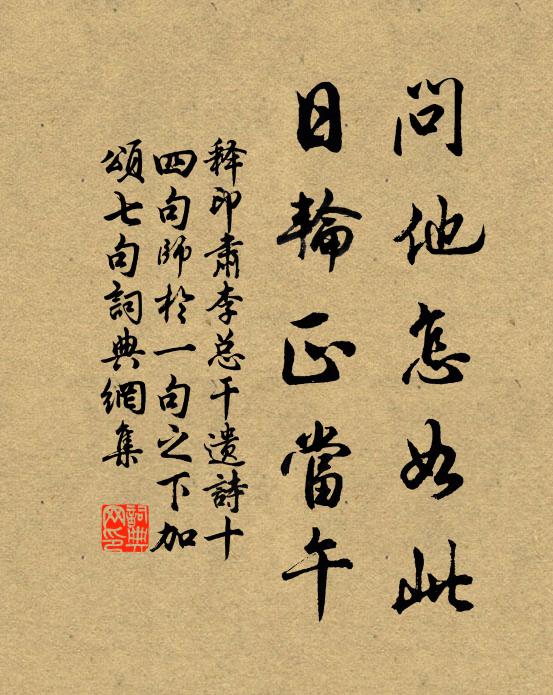 問他怎如此
日輪正當午
释印肅李总干遺詩十
四句師於一句之下加
頌七句詞典網集
詞典網印